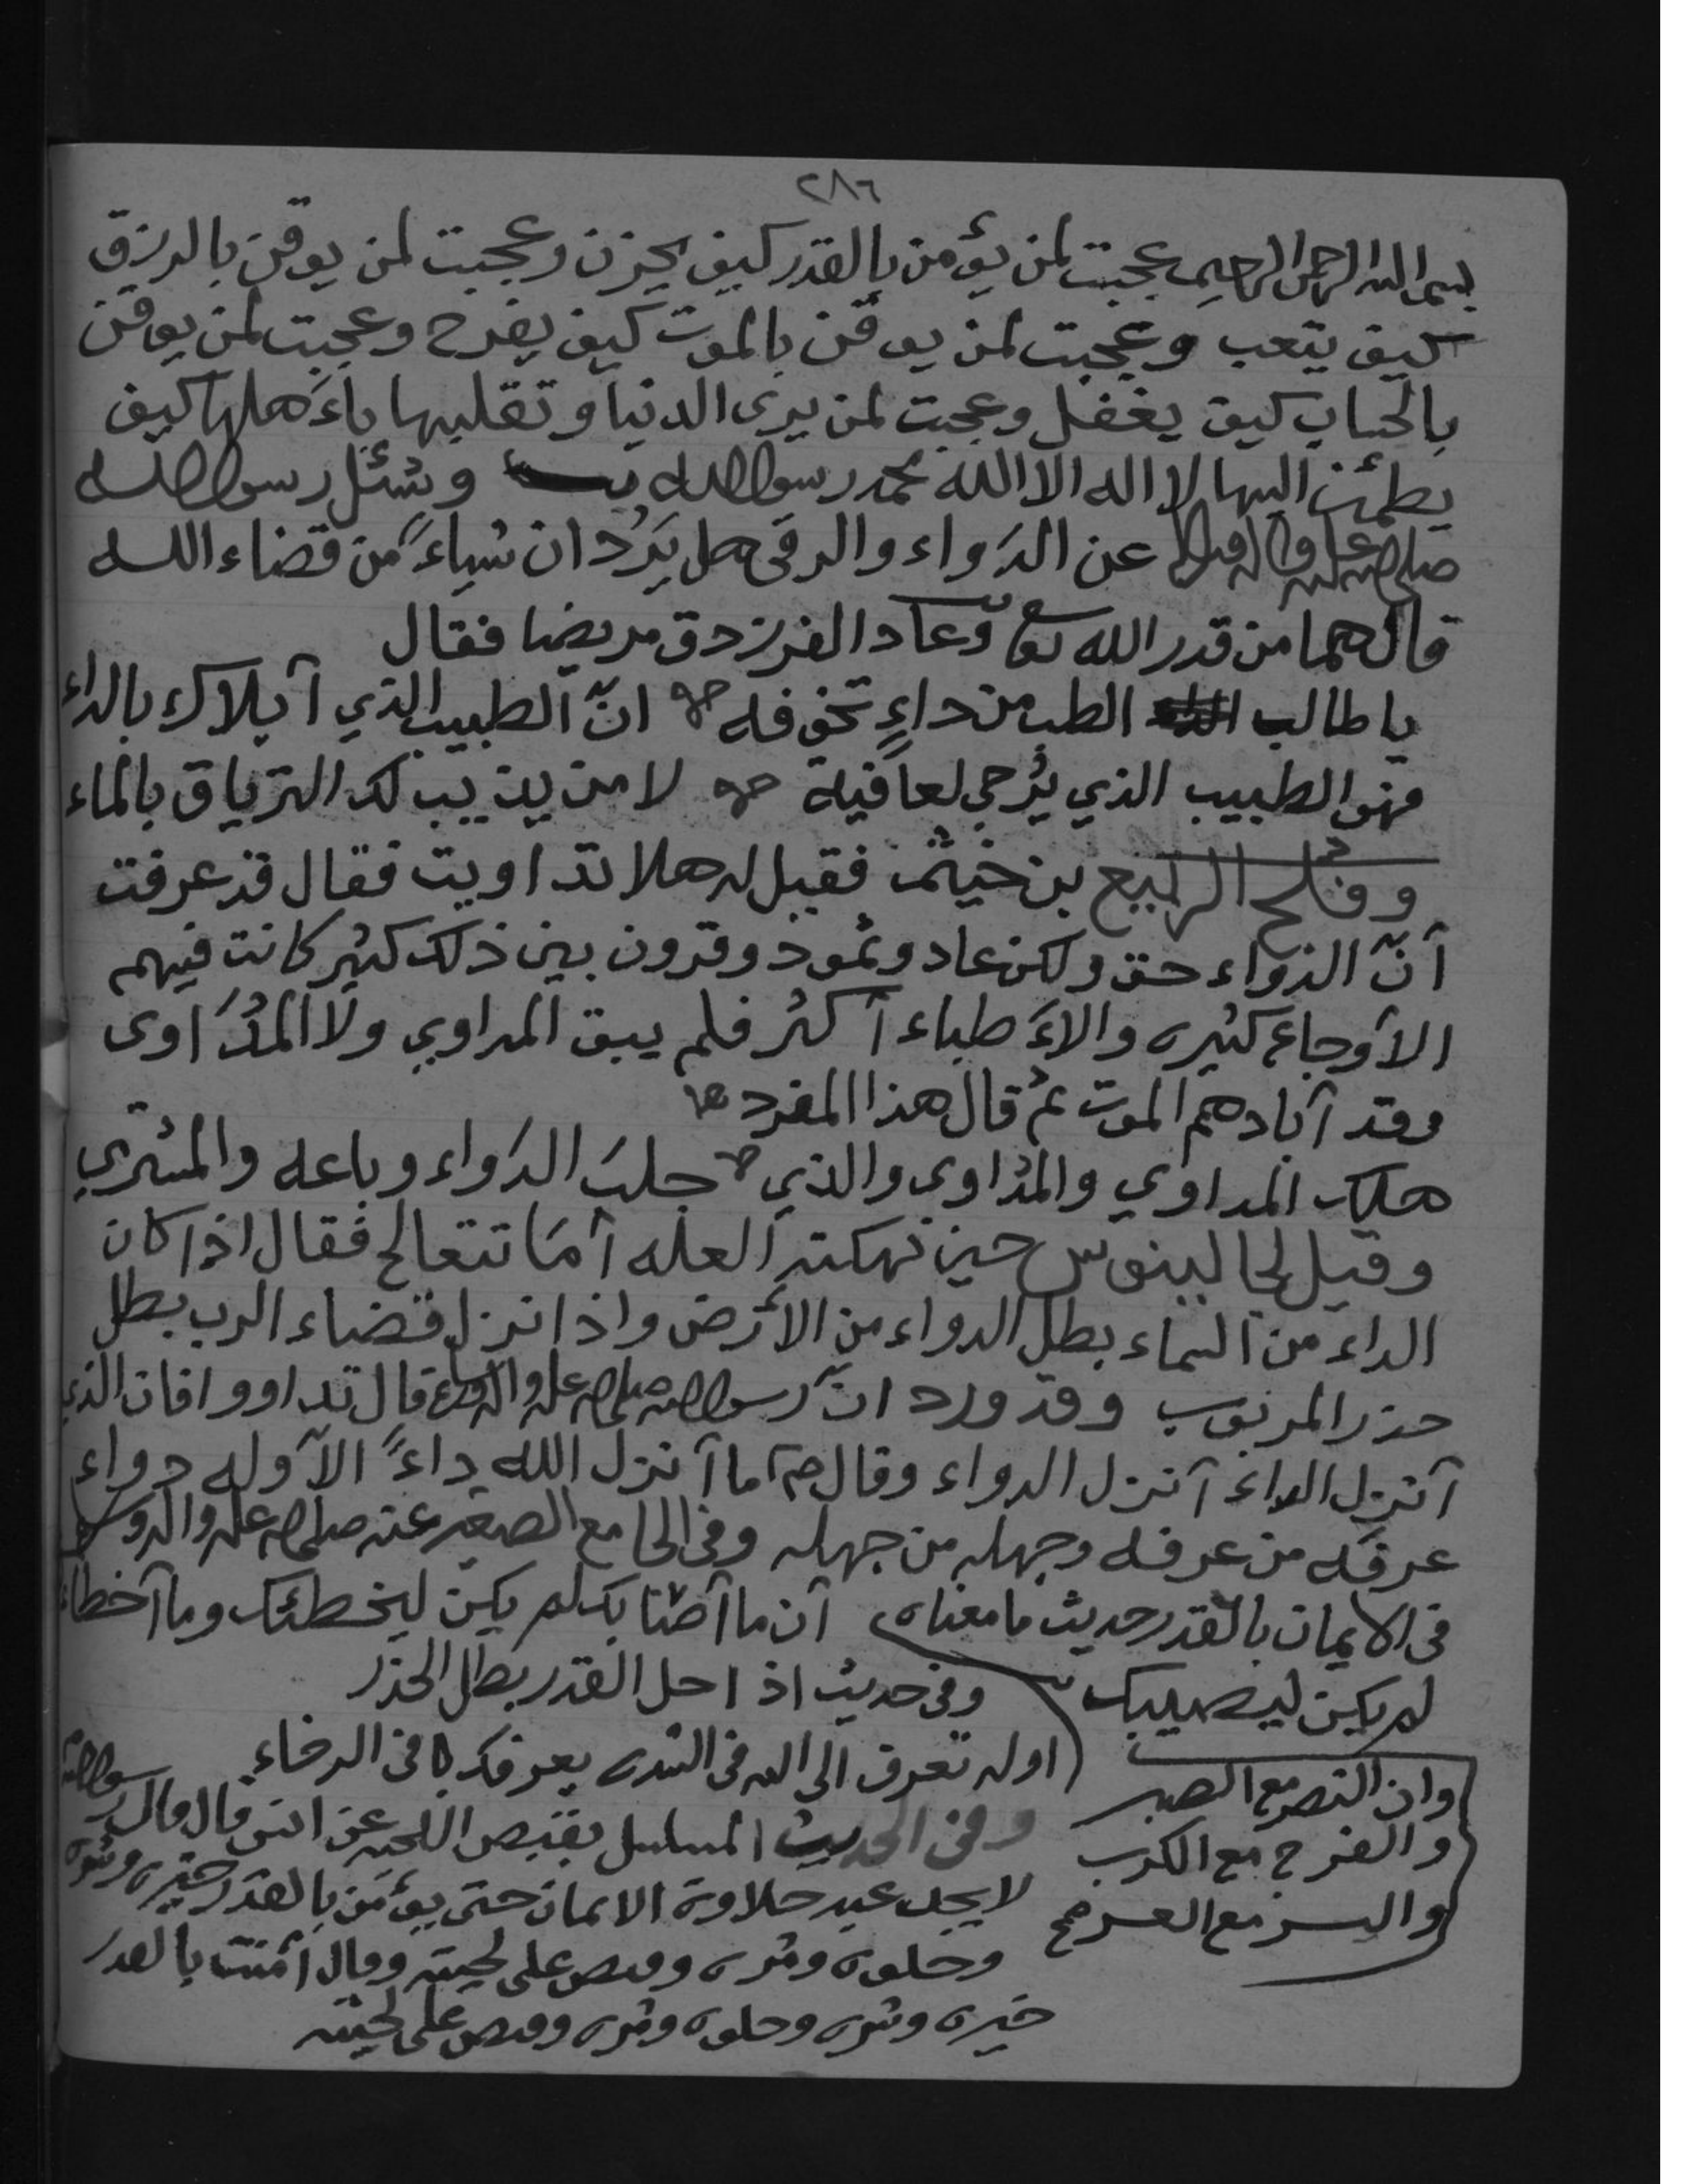 ٢٨٦
بسم الله الرحمن الرحيم عجبت لمن يؤمن بالقدر كيف يحزن وعجبت لمن يوقن بالرزق
كيف يتعب وعجبت لمن يوقن بالموت كيف يفرح وعجبت لمن يوقن
بالحساب كيف يغفل وعجبت لمن يرى الدنيا وتقلبها بأهلها كيف
يطمئن اليها لا اله الا الله محمد رسول الله وسئل رسول الله
صلى الله عليه وآله وسلم عن الدَواء والرقى هل يَرُدان شياءً من قضاء الله
قال هما من قدر الله تعا وعاد الفرزدق مريضا فقال
يا طالب الطب من داءٍ تخوفه انّ الطبيب الذي آبلاك بالداء
فهو الطبيب الذي يُرجى لعافية لا من يذيب لك الترياق بالماء
وفلج الربيع بن خيثم فقيل له هلا تداويت فقال قد عرفت
آنّ الدواء حق ولكن عاد وثمود وقرون بين ذلك كثير كانت فيهم
الأوجاع كثيره والاءَطباء آكثر فلم يبق المداوي ولا المُدَاوى
وقد آبادهم الموت ثم قال هذا المفرد
هلك المداوي والمُداوى والذي جلبَ الدَواء وباعه والمشتري
وقيل لجالينوس حين نهكته العله آمَا تتعالج فقال اذا كان
الداء من السماء بطل الدواء من الأرض واذا نزل قضاء الرب بطل
حذر المربوب وقد ورد انّ رسول الله صلى الله عليه وآله وسلم قال تداووا فان الذي
آنزل الداء آنزل الدواء وقال ص ما آنزل الله داءً الآ وله دواء
عرفه من عرفه وجهله من جهله وفى الجامع الصغير عنه صلى الله عليه وآله وسلم
فى الايمان بالقدر حديث ما معناه آن ما آصابك لم يكن ليخطئك وما آخطاء
لم يكن ليصيبك وفى حديث اذا حل القدر بطل الحذر
اوله تعرف الى الله فى الشده يعرفك فى الرخاء
وان النصر مع الصبر
والفرج مع الكرب
واليسر مع العسر صح
وفى الحديث المسلسل بقبض اللحيه عن انس قال قال رسول الله
لا يجد عبد حلاوة الايمان حتى يؤمن بالقدر خيره وشره
وحلوه ومره وقبض على لحيته وقال آمنت بالقدر
خيره وشره وحلوه ومره وقبض على لحيته